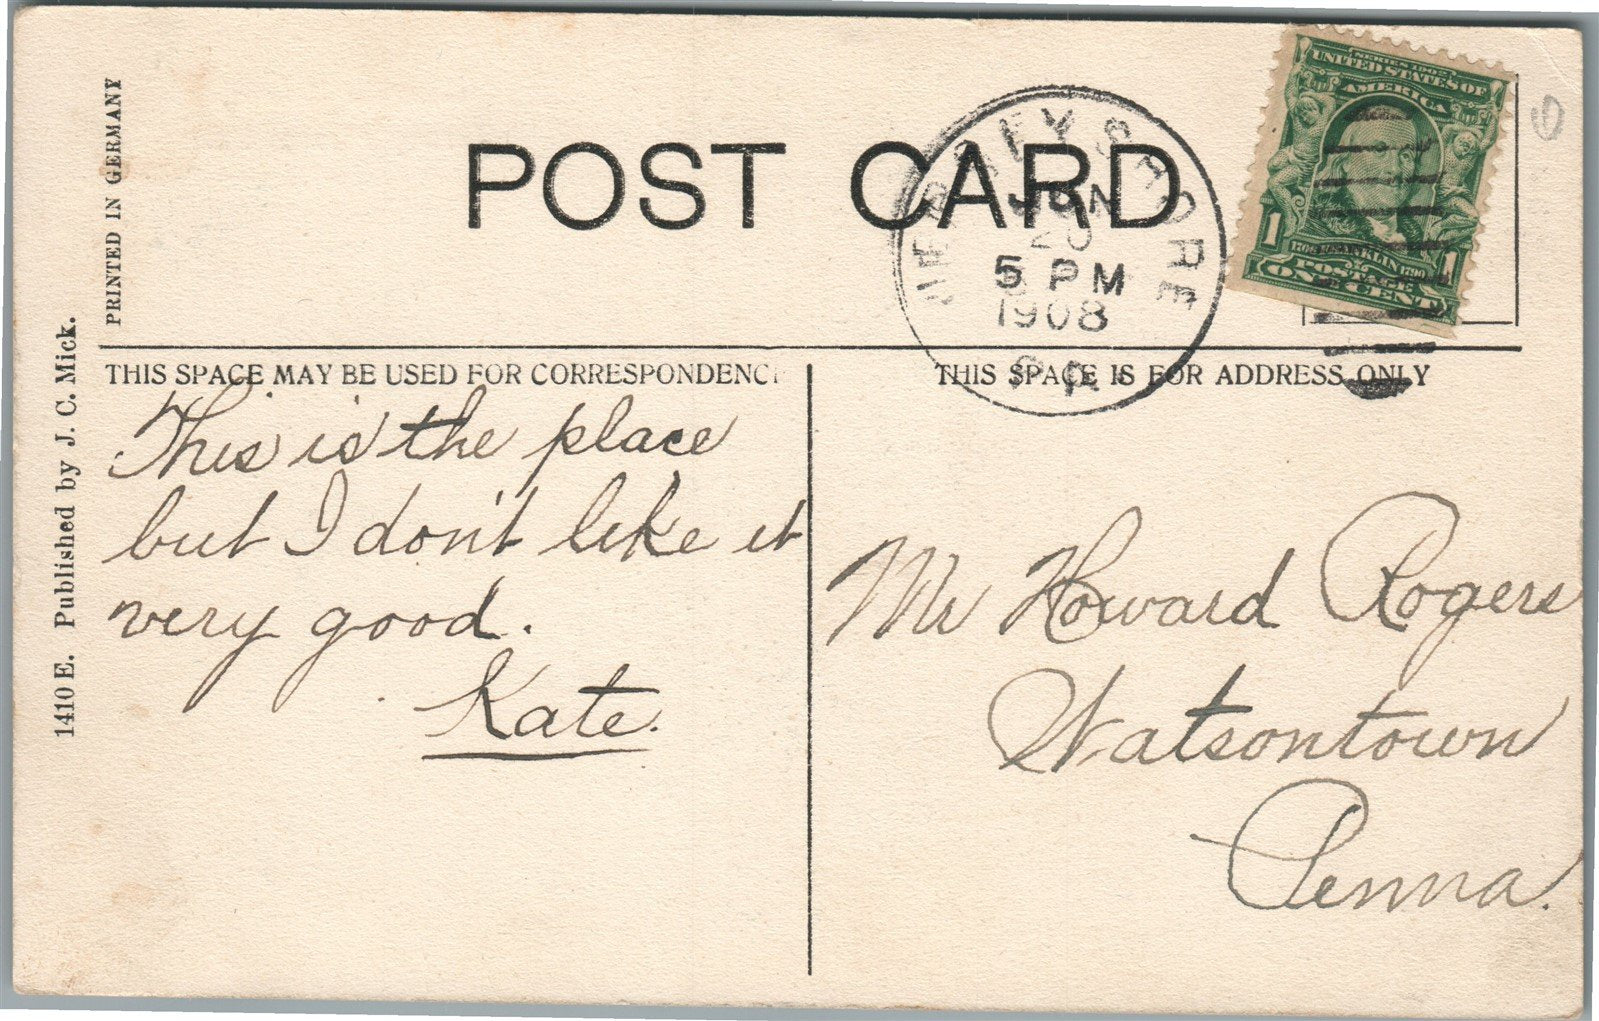 PRINTED IN GERMANY
1410 E. Published by J. C. Mick.
POST CARD
JERSEY SHORE
JUN
20
5 PM
1908
PA.
SERIES 1902
UNITED STATES OF
AMERICA
1706 FRANKLIN 1790
1 1
POSTAGE
ONE CENT
THIS SPACE MAY BE USED FOR CORRESPONDENCE
This is the place
but I don't like it
very good.
Kate.
THIS SPACE IS FOR ADDRESS ONLY
Mr Howard Rogers
Watsontown
Penna.